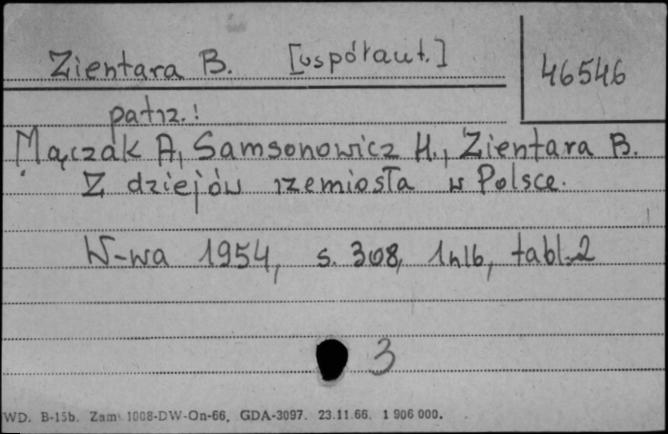 Zientara B. [współaut.]
46546
patrz.:
Mączak A, Samsonowicz H., Zientara B.
Z dziejów rzemiosła w Polsce.
W-wa 1954, s. 308, 1nlb, tabl.2
3
WD. B-15b. Zam. 1008-DW-On-66, GDA-3097. 23.11.66. 1 906 000.